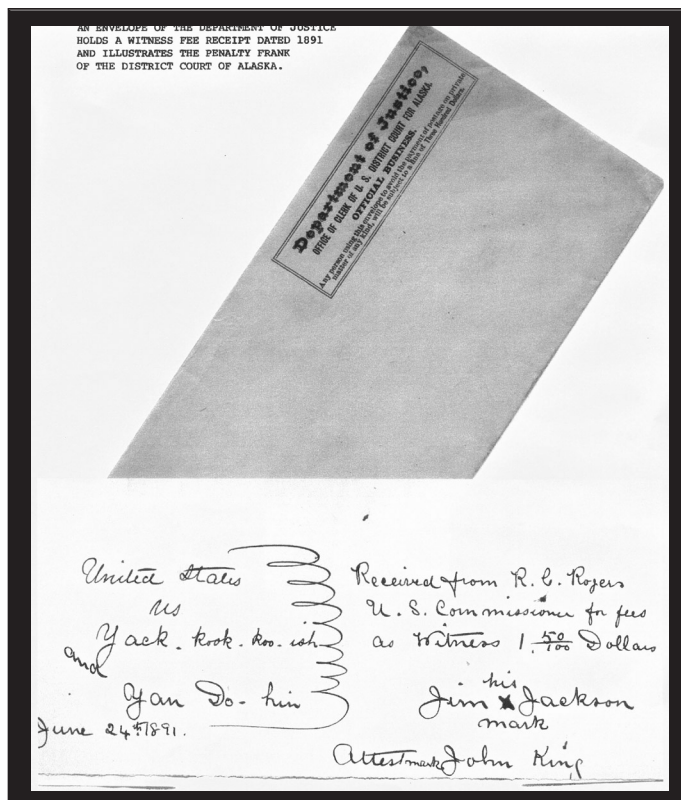 AN ENVELOPE OF THE DEPARTMENT OF JUSTICE
HOLDS A WITNESS FEE RECEIPT DATED 1891
AND ILLUSTRATES THE PENALTY FRANK
OF THE DISTRICT COURT OF ALASKA.
Department of Justice,
OFFICE OF CLERK OF U. S. DISTRICT COURT FOR ALASKA.
OFFICIAL BUSINESS.
Any person using this envelope to avoid the payment of postage on private
matter of any kind, will be subject to a fine of Three Hundred Dollars.
United States
vs
Yack-kook-koo-ish
and
Yan Do-hin
June 24th 1891.
Received from R. C. Rogers
U. S. Commissioner for fees
as Witness 1.50/100 Dollars
his
Jim X Jackson
mark
Attest mark John King